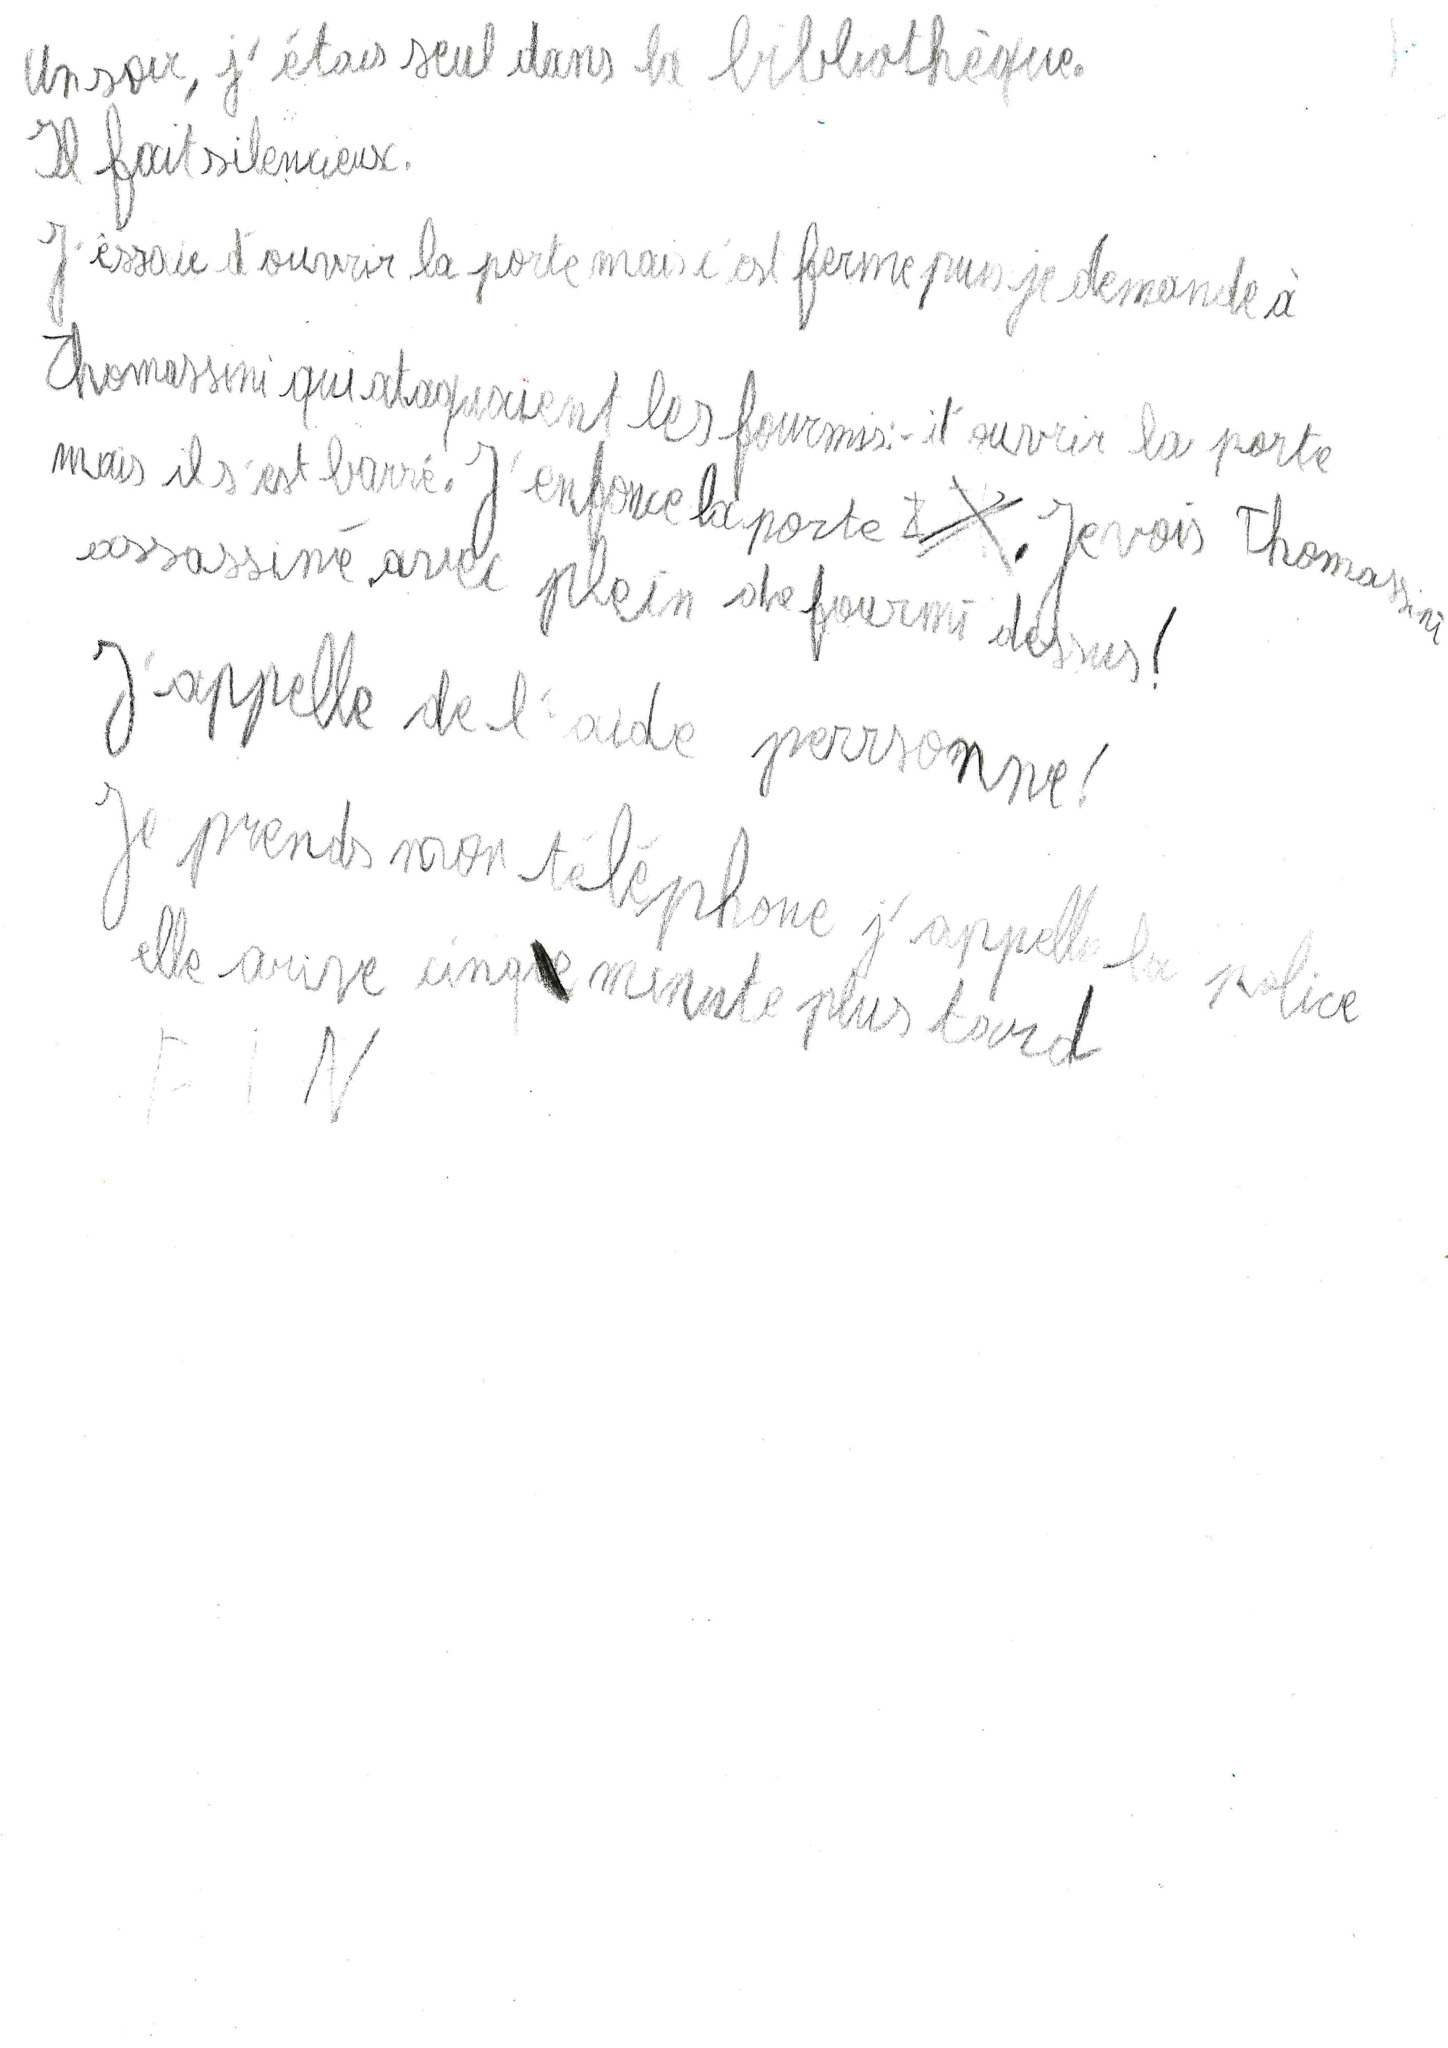 Un soir, j'étais seul dans la bibliothèque.
Il fait silencieux.
J'éssaie d'ouvrir la porte mais c'est ferme puis je demande à
Thomassini qui ataquaient les fourmis:- d'ouvrir la porte
mais il s'est barré. J'enfonce la porte. Je vois Thomassini
assassiné avec plein de fourmi dessus!
J'appelle de l'aide perrsonne!
Je prends mon téléphone j'appelle la police
elle arive cinq minute plus tard
FIN